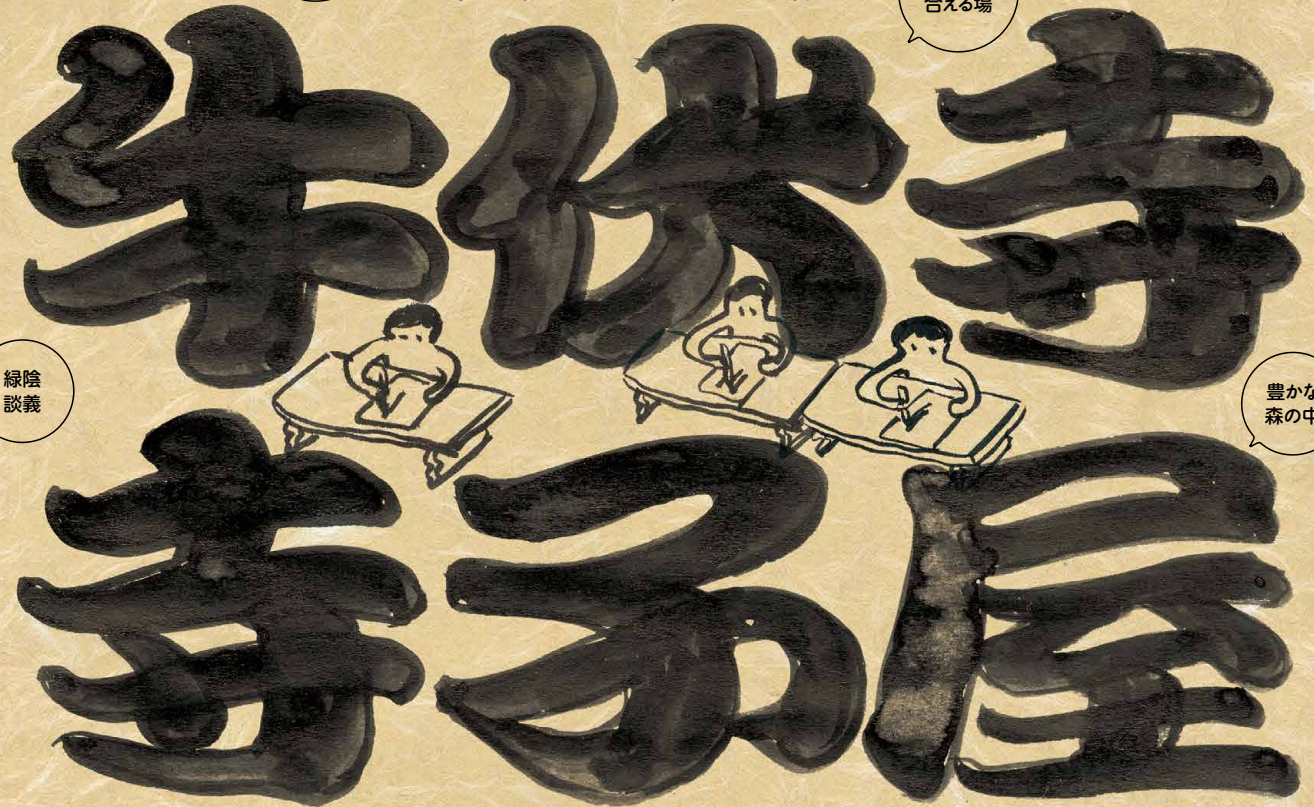 合える場
牛伏寺
緑陰
談義
豊かな
森の中
寺子屋